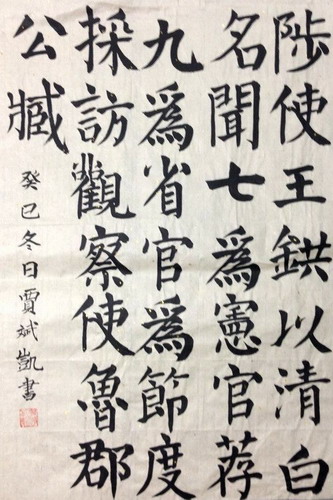 陟使王鉷以清白
名聞七爲憲官荐
九爲省官爲節度
採訪觀察使魯郡
公臧
癸巳冬日賈斌凱書